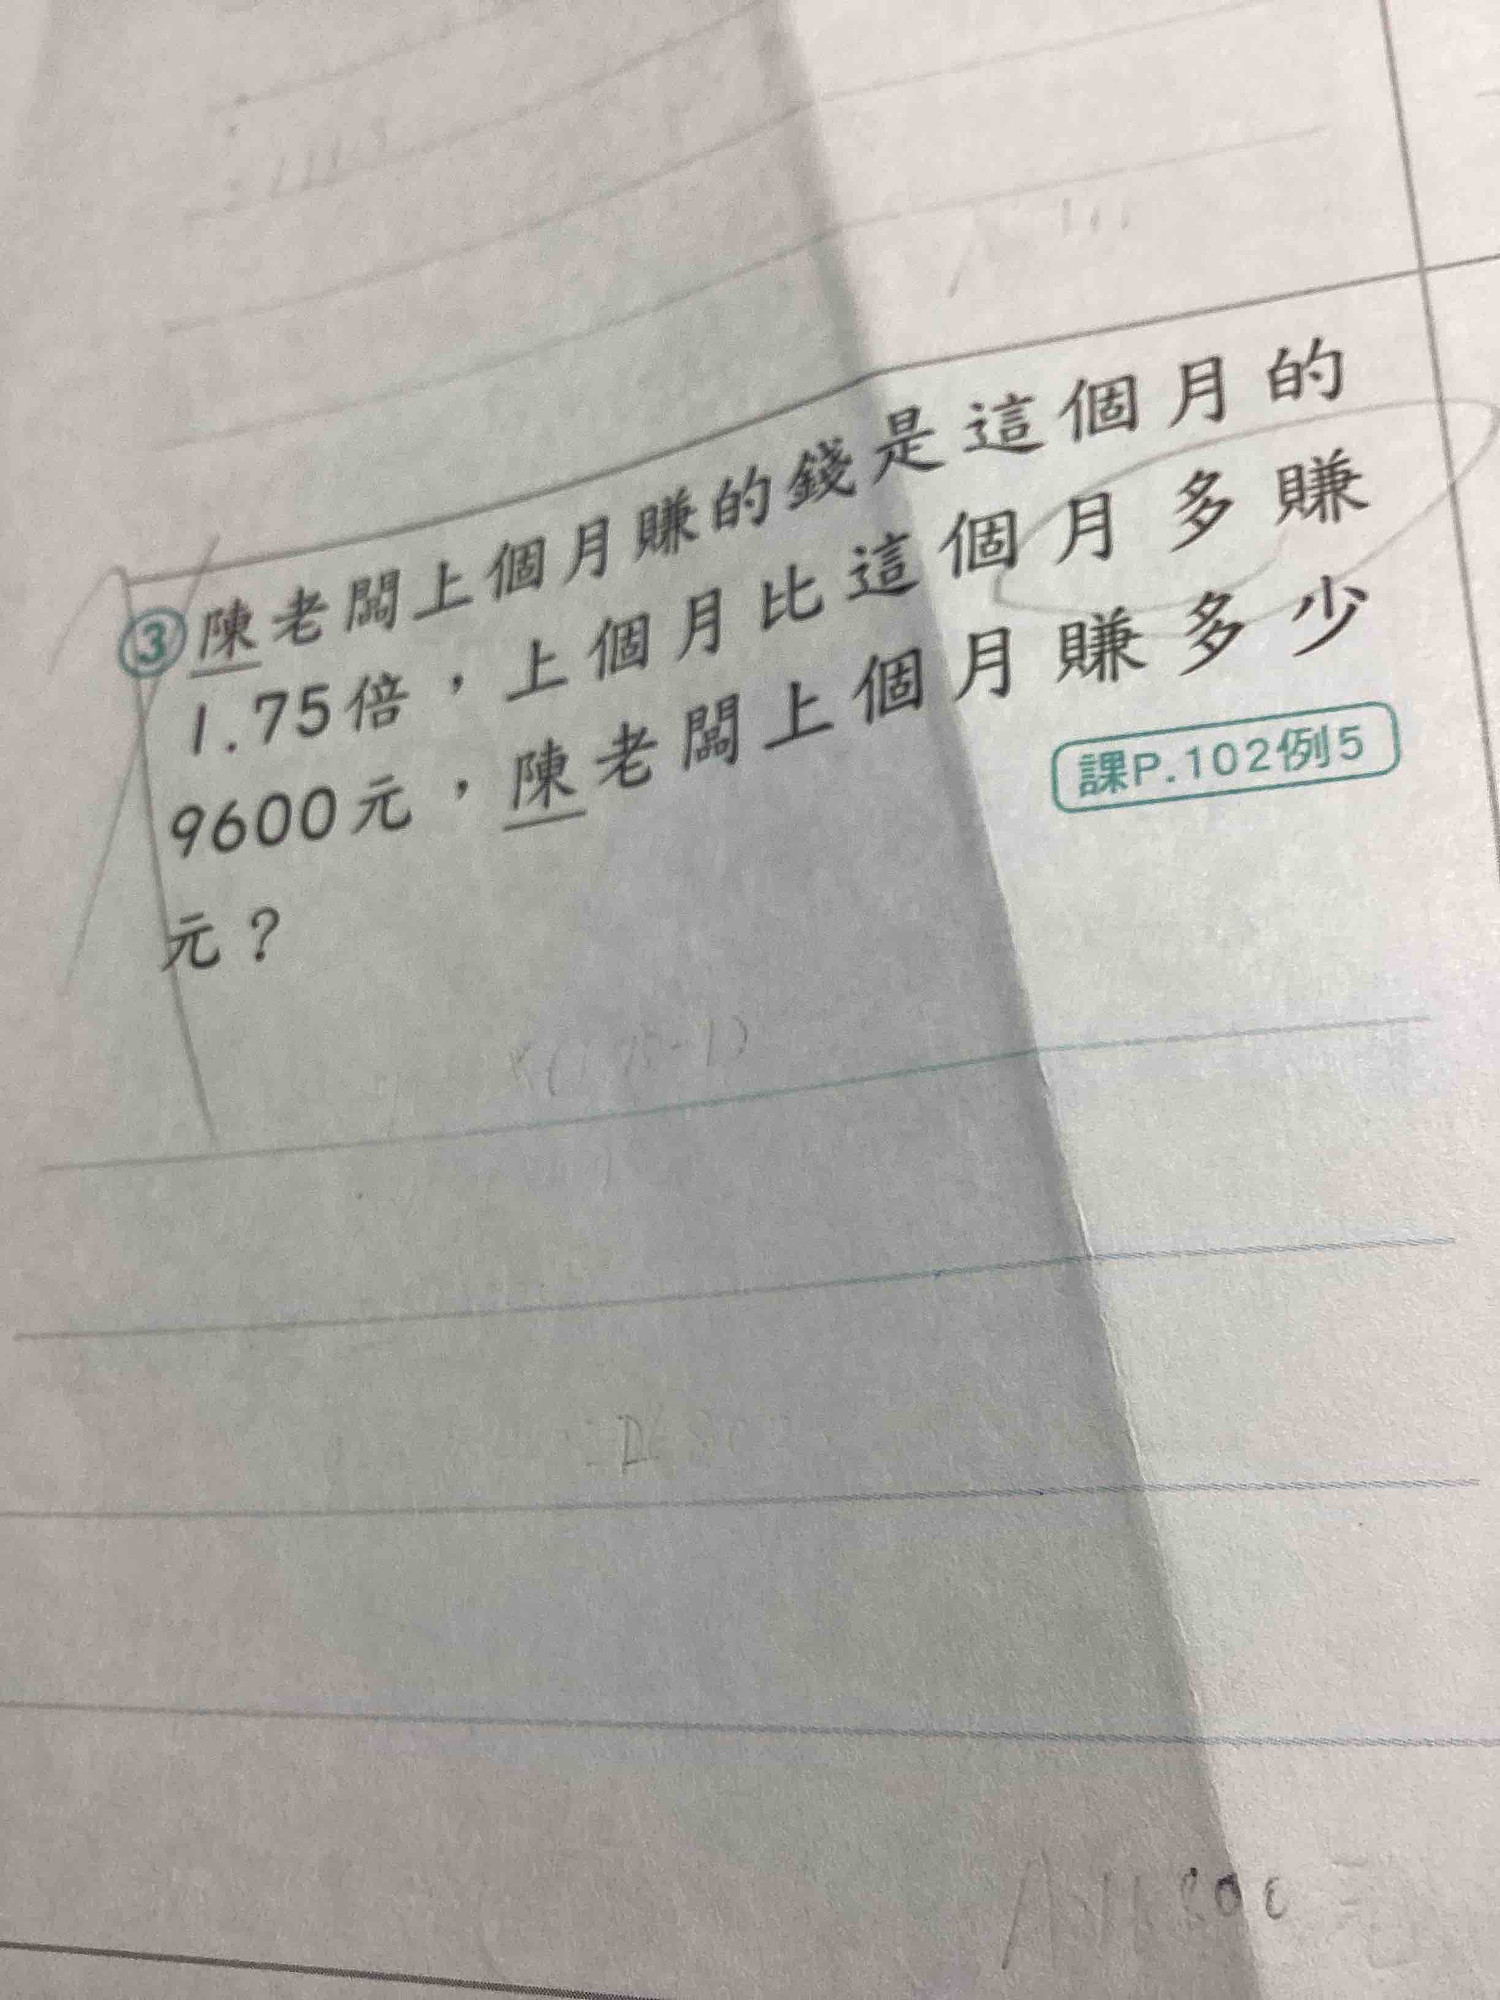 ③陳老闆上個月賺的錢是這個月的
1.75倍，上個月比這個月多賺
9600元，陳老闆上個月賺多少
元？
課P.102例5